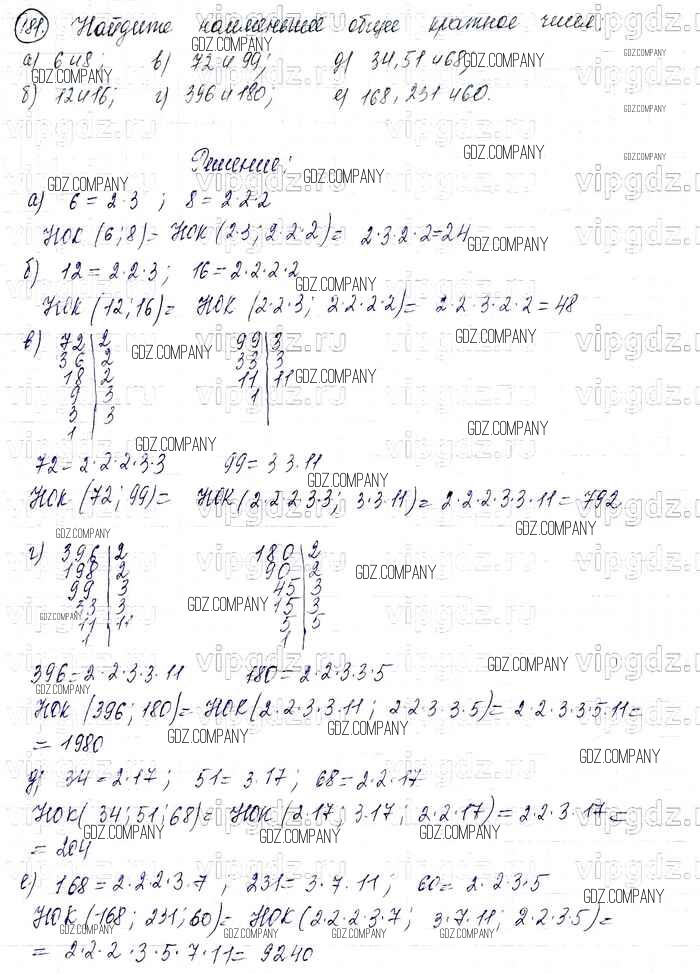 181. Найдите наименьшее общее кратное чисел:
а) 6 и 8; в) 72 и 99; д) 34, 51 и 68;
б) 12 и 16; г) 396 и 180; е) 168, 231 и 60.
Решение:
а) 6 = 2·3 ; 8 = 2·2·2
НОК (6; 8) = НОК (2·3; 2·2·2) = 2·3·2·2=24
б) 12 = 2·2·3; 16 = 2·2·2·2
НОК (12; 16) = НОК (2·2·3; 2·2·2·2) = 2·2·3·2·2 = 48
в) 72|2 99|3
36|2 33|3
18|2 11|11
9|3 1|
3|3
1|
72 = 2·2·2·3·3 99 = 3·3·11
НОК (72; 99) = НОК (2·2·2·3·3; 3·3·11) = 2·2·2·3·3·11 = 792
г) 396|2 180|2
198|2 90|2
99|3 45|3
33|3 15|3
11|11 5|5
1| 1|
396 = 2·2·3·3·11 180 = 2·2·3·3·5
НОК (396; 180) = НОК (2·2·3·3·11; 2·2·3·3·5) = 2·2·3·3·5·11 =
= 1980
д) 34 = 2·17; 51 = 3·17; 68 = 2·2·17
НОК (34; 51; 68) = НОК (2·17; 3·17; 2·2·17) = 2·2·3·17 =
= 204
е) 168 = 2·2·2·3·7 ; 231 = 3·7·11; 60 = 2·2·3·5
НОК (168; 231; 60) = НОК (2·2·2·3·7; 3·7·11; 2·2·3·5) =
= 2·2·2·3·5·7·11 = 9240
GDZ.COMPANY
vipgdz.ru